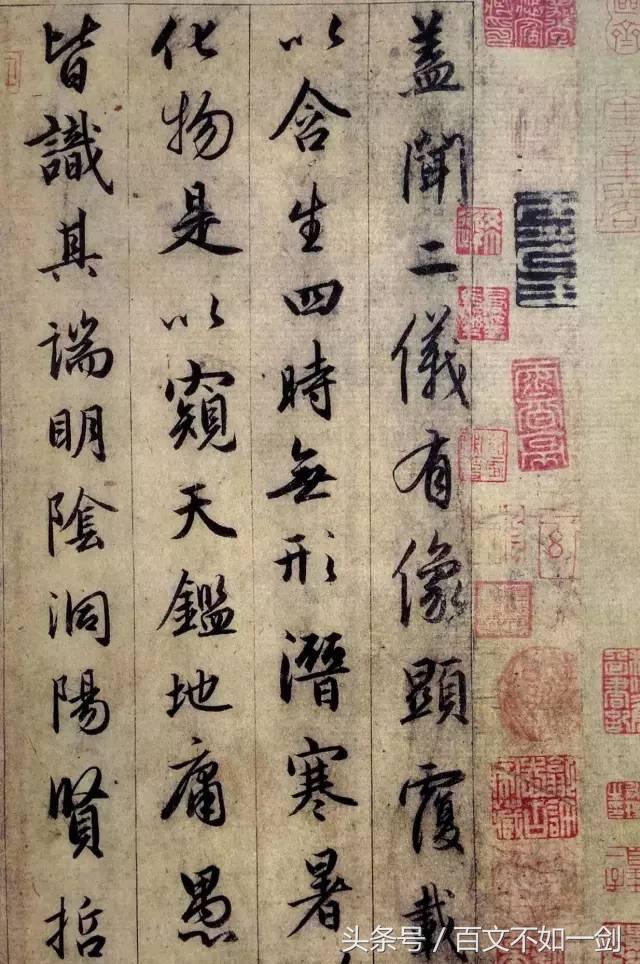 蓋聞二儀有像顯覆載
以含生四時無形潛寒暑
化物是以窺天鑑地庸愚
皆識其端明陰洞陽賢哲
头条号/百文不如一剑